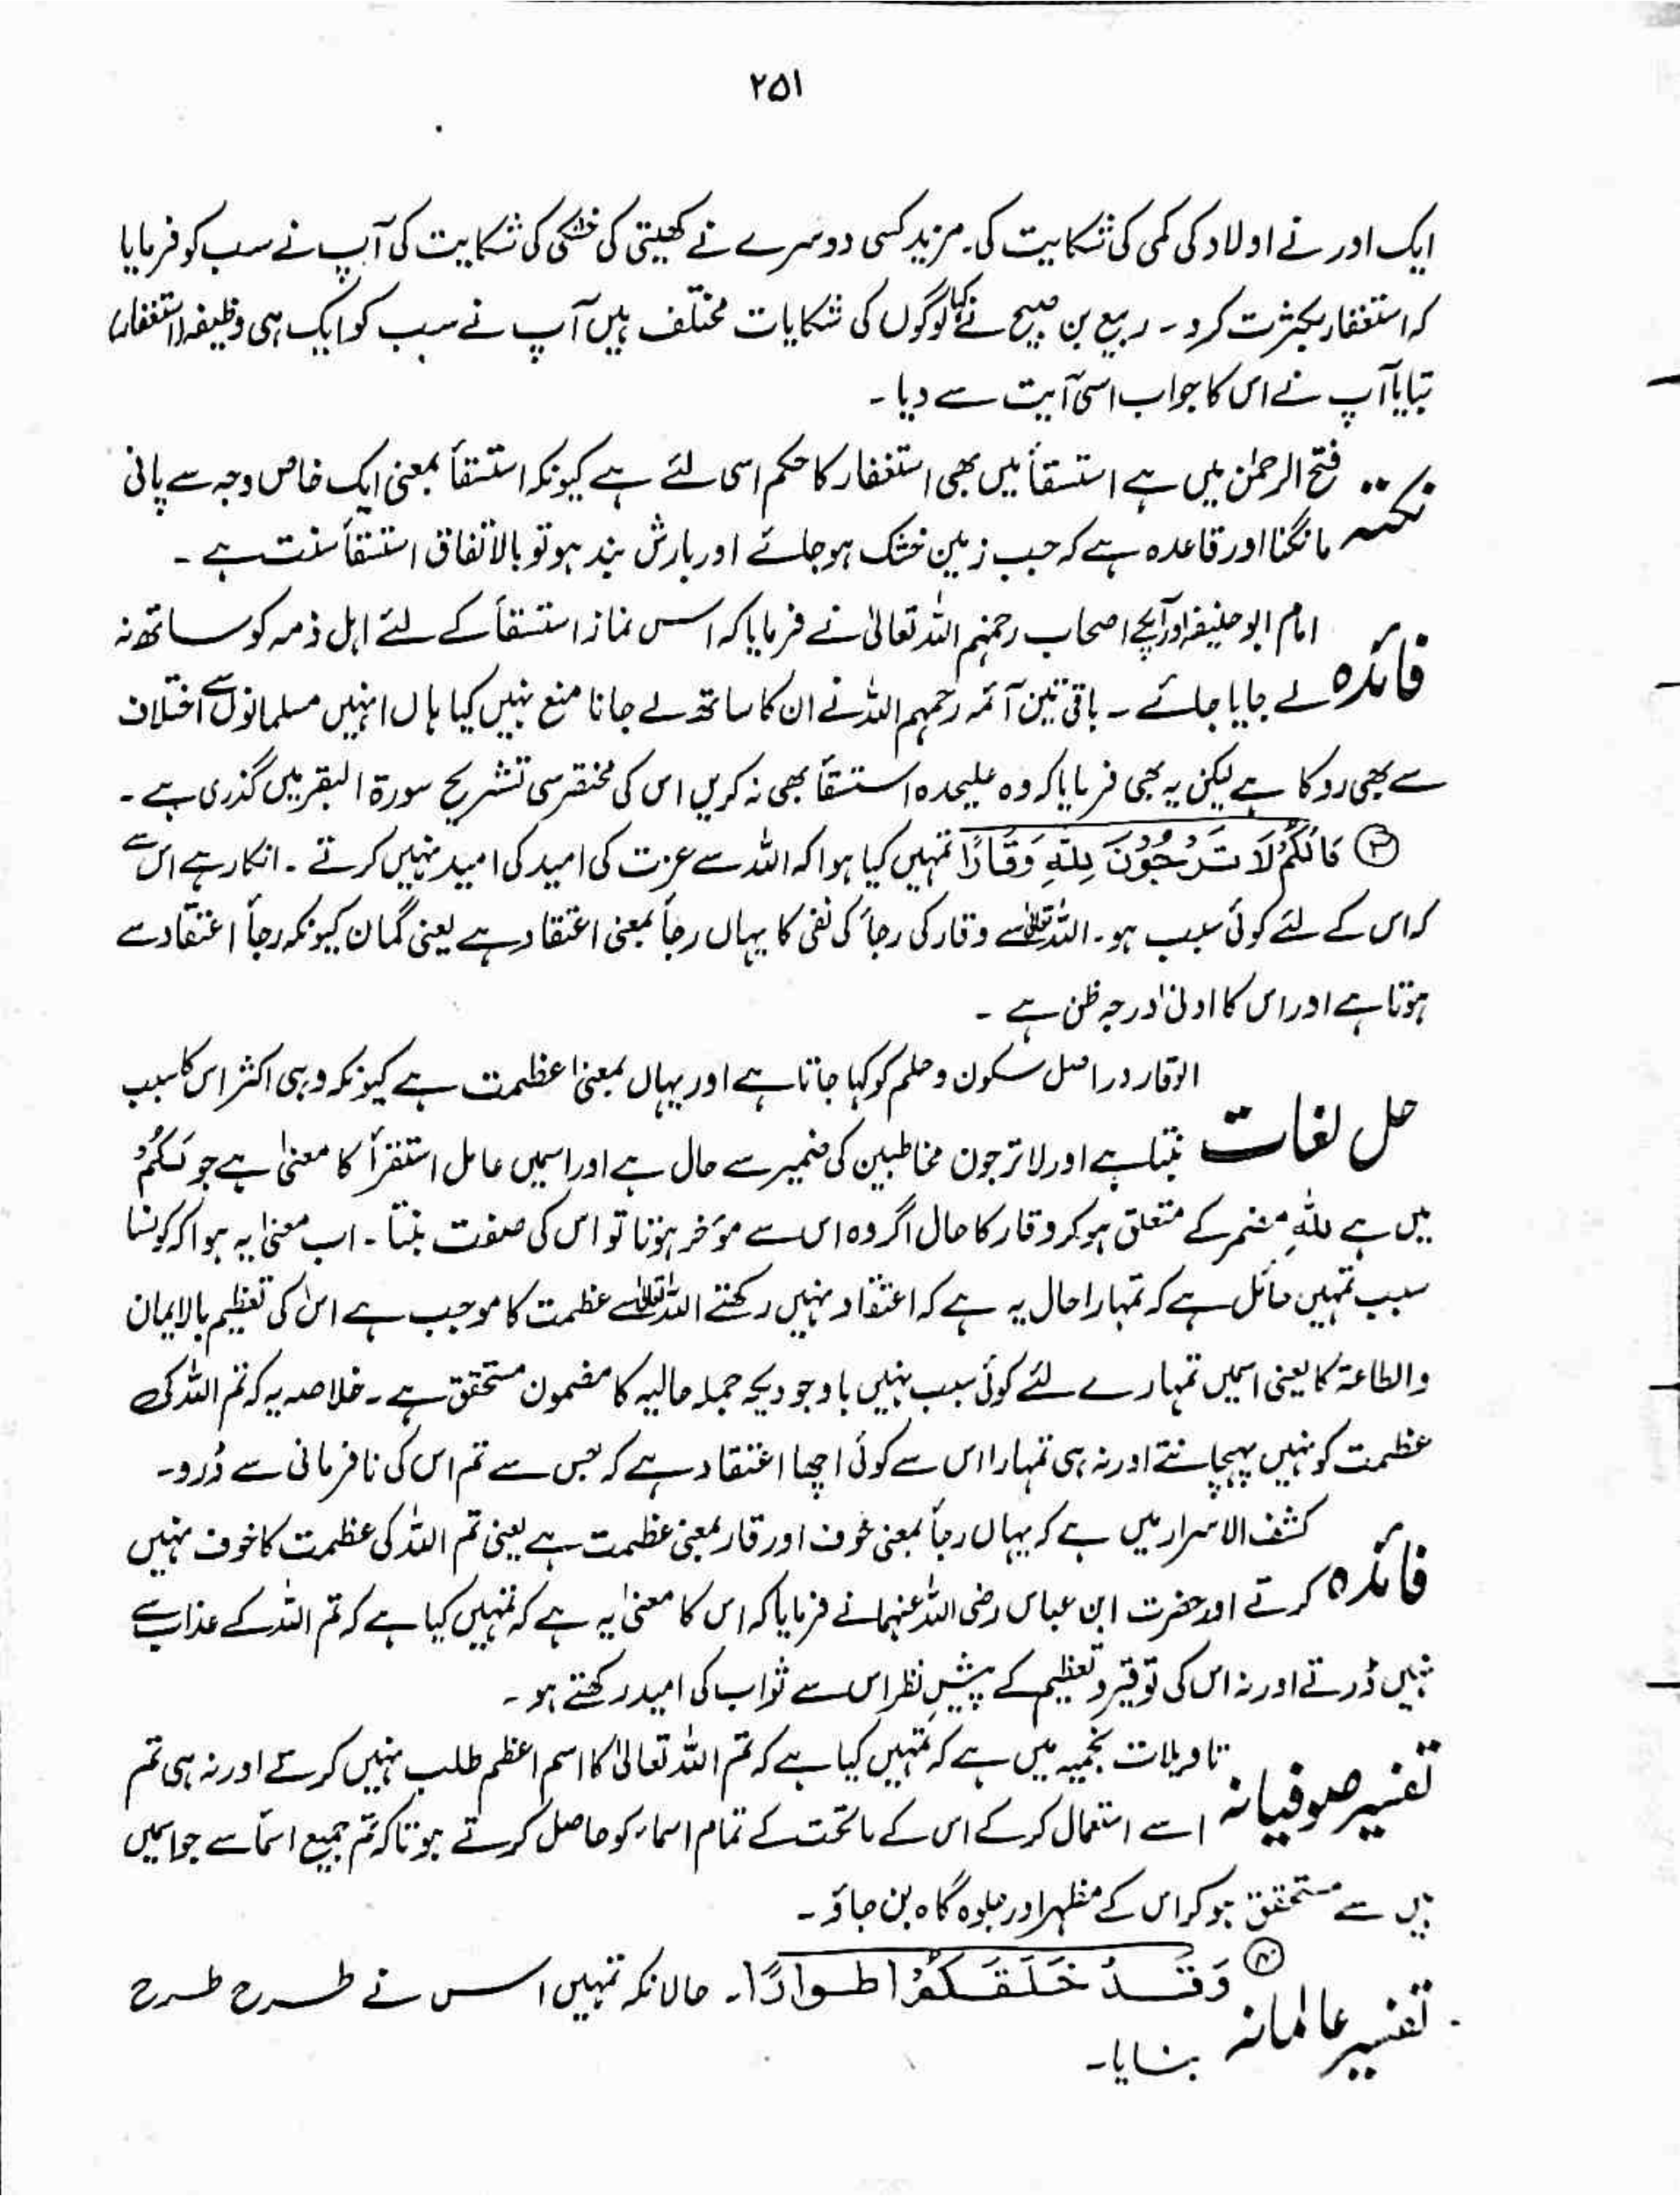 ۲۵۱
ایک اور نے اولاد کی کمی کی شکایت کی۔ مزید کسی دوسرے نے کھیتی کی خشکی کی شکایت کی آپ نے سب کو فرمایا
کہ استغفار بکثرت کرو۔ ربیع بن صبیح نے کہا لوگوں کی شکایات مختلف ہیں آپ نے سب کو ایک ہی وظیفہ (استغفار)
بتایا آپ نے اس کا جواب اسی آیت سے دیا۔
نکتہ فتح الرحمٰن میں ہے استسقأ میں بھی استغفار کا حکم اسی لئے ہے کیونکہ استسقأ بمعنی ایک خاص وجہ سے پانی
مانگنا اور قاعدہ ہے کہ جب زمین خشک ہو جائے اور بارش بند ہو تو بالاتفاق استسقأ سنت ہے۔
فائدہ امام ابو حنیفہ اور آپکے اصحاب رحمہم اللہ تعالیٰ نے فرمایا کہ اس نماز استسقأ کے لئے اہل ذمہ کو ساتھ نہ
لے جایا جائے۔ باقی تین آئمہ رحمہم اللہ نے ان کا ساتھ لے جانا منع نہیں کیا ہاں انہیں مسلمانوں سے اختلاف
سے بھی روکا ہے لیکن یہ بھی فرمایا کہ وہ علیحدہ استسقأ بھی نہ کریں اس کی مختصر سی تشریح سورۃ البقر میں گذری ہے۔
مَا لَكُمْ لَا تَرْجُوْنَ لِلّٰهِ وَقَارًا تمہیں کیا ہوا کہ اللہ سے عزت کی امید کی امید نہیں کرتے۔ انکار ہے اس سے
کہ اس کے لئے کوئی سبب ہو۔ اللہ تعالیٰ سے وقار کی رجأ کی نفی کا یہاں رجأ بمعنی اعتقاد ہے یعنی گمان کیونکہ رجأ اعتقاد سے
ہوتا ہے اور اس کا ادنیٰ درجہ ظن ہے۔
حل لغات الوقار دراصل سکون و حلم کو کہا جاتا ہے اور یہاں بمعنیٰ عظمت ہے کیونکہ وہی اکثر اس کا سبب
بنتا ہے اور لا ترجون مخاطبین کی ضمیر سے حال ہے اور اسمیں عامل استقرأ کا معنیٰ ہے جو لَكُمْ
میں ہے للّٰہِ مضمر کے متعلق ہو کر وقار کا حال اگر وہ اس سے مؤخر ہوتا تو اس کی صفت بنتا۔ اب معنیٰ یہ ہوا کہ کونسا
سبب تمہیں حائل ہے کہ تمہارا حال یہ ہے کہ اعتقاد نہیں رکھتے اللہ تعالیٰ سے عظمت کا موجب ہے اس کی تعظیم بالایمان
والطاعۃ کا یعنی اسمیں تمہارے لئے کوئی سبب نہیں باوجودیکہ جملہ حالیہ کا مضمون متحقق ہے۔ خلاصہ یہ کہ تم اللہ کی
عظمت کو نہیں پہچانتے اور نہ ہی تمہارا اس سے کوئی اچھا اعتقاد ہے کہ جس سے تم اس کی نافرمانی سے ڈرو۔
فائدہ کشف الاسرار میں ہے کہ یہاں رجأ بمعنی خوف اور قار بمعنی عظمت ہے یعنی تم اللہ کی عظمت کا خوف نہیں
کرتے اور حضرت ابن عباس رضی اللہ عنہما نے فرمایا کہ اس کا معنیٰ یہ ہے کہ تمہیں کیا ہے کہ تم اللہ کے عذاب سے
نہیں ڈرتے اور نہ اس کی توقیر و تعظیم کے پیشِ نظر اس سے ثواب کی امید رکھتے ہو۔
تفسیر صوفیانہ تاویلات نجمیہ میں ہے کہ تمہیں کیا ہے کہ تم اللہ تعالیٰ کا اسم اعظم طلب نہیں کرتے اور نہ ہی تم
اسے استعمال کر کے اس کے ماتحت کے تمام اسماء کو حاصل کرتے ہو تاکہ تم جمیع اسمأ سے جو اسمیں
ہیں سے متحقق ہو کر اس کے مظہر اور جلوہ گاہ بن جاؤ۔
تفسیر عالمانہ وَقَدْ خَلَقَكُمْ اطوارًا۔ حالانکہ تمہیں اس نے طرح طرح
بنایا۔